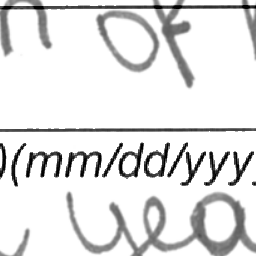 n of
)(mm/dd/yyyy
yea